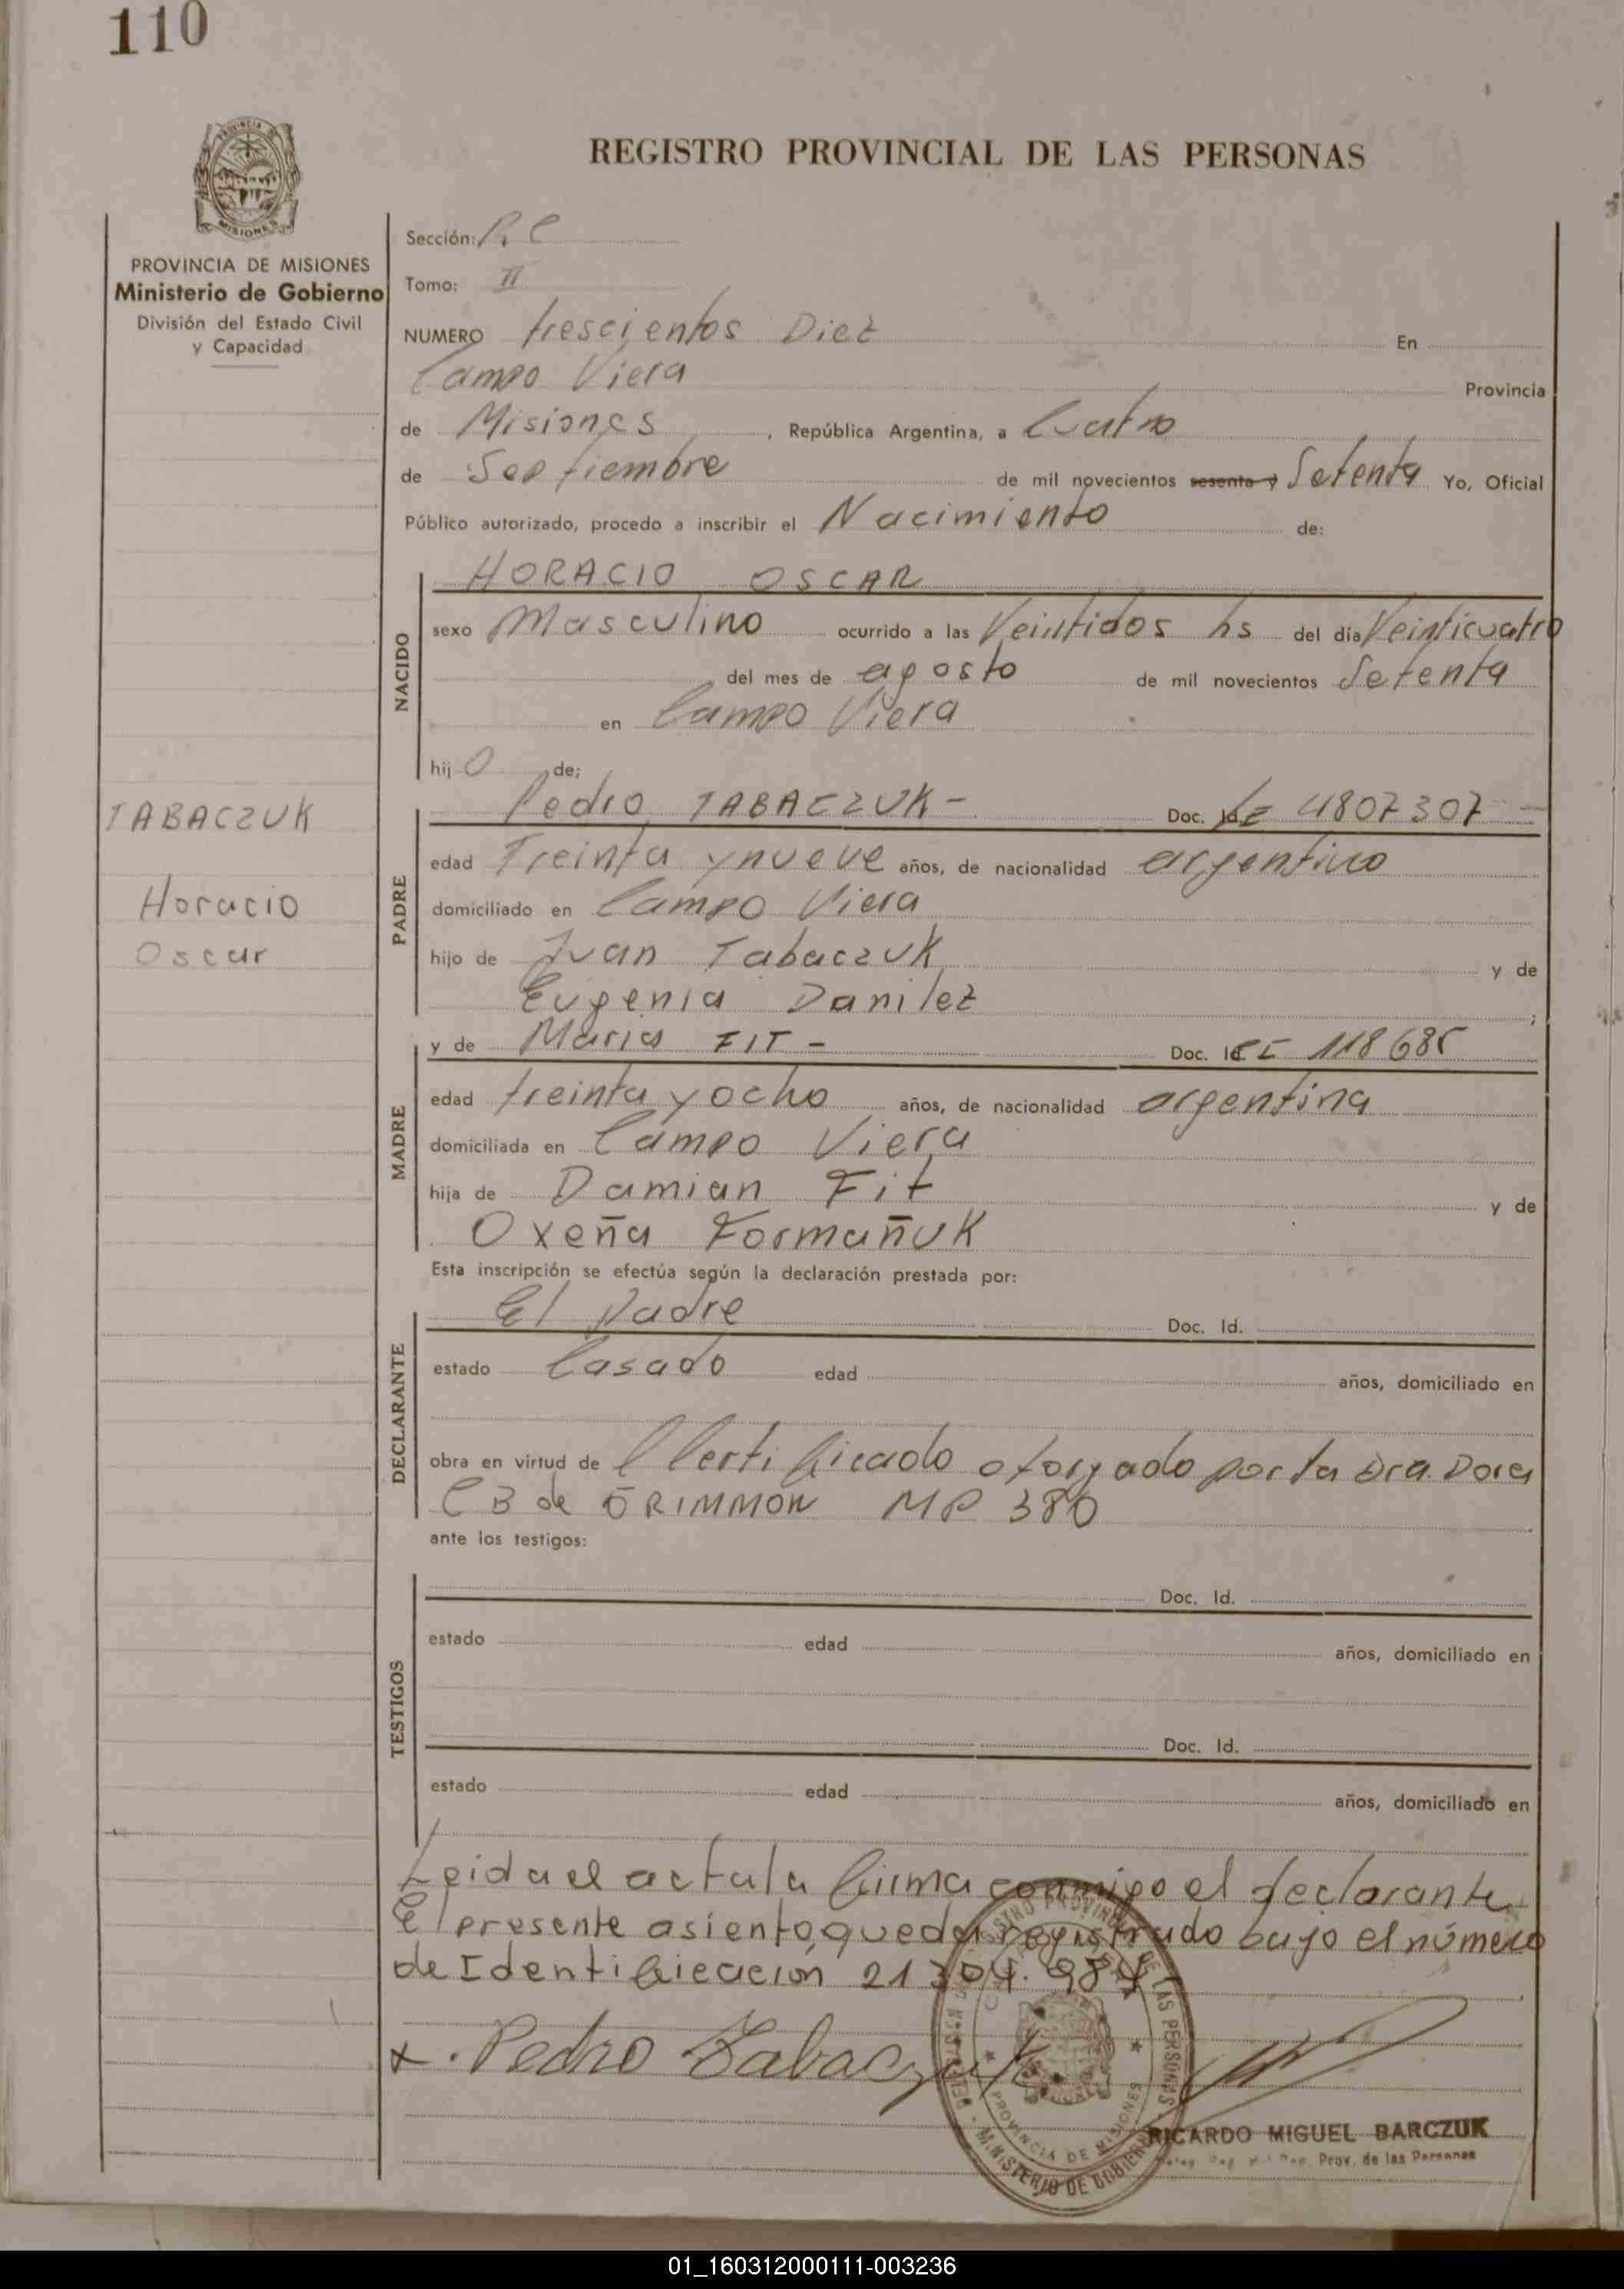 110
REGISTRO PROVINCIAL DE LAS PERSONAS
PROVINCIA DE MISIONES
Ministerio de Gobierno
División del Estado Civil
y Capacidad
Sección:
Tomo: II
NUMERO trescientos Diez En
Campo Viera Provincia
de Misiones, República Argentina, a Cuatro
de Septiembre de mil novecientos sesenta y Setenta Yo, Oficial
Público autorizado, procedo a inscribir el Nacimiento de:
NACIDO
HORACIO OSCAR
sexo Masculino ocurrido a las Veintidos hs del día Veinticuatro
del mes de agosto de mil novecientos Setenta
en Campo Viera
hijo de;
TABACZUK
Horacio
Oscar
PADRE
Pedro TABACZUK- Doc. Id. LE 4807307 -
edad Treinta y nueve años, de nacionalidad argentino
domiciliado en Campo Viera
hijo de Juan Tabaczuk y de
Eugenia Danilez ;
MADRE
y de Maria FIT - Doc. Id. 118685
edad treinta y ocho años, de nacionalidad argentina
domiciliada en Campo Viera
hija de Damian Fit y de
Oxeña Formañuk
Esta inscripción se efectúa según la declaración prestada por:
DECLARANTE
El Padre Doc. Id.
estado Casado edad años, domiciliado en
obra en virtud de l Certificado otorgado por la Dra. Dora
C B de GRIMMON MP 380
ante los testigos:
TESTIGOS
Doc. Id.
estado edad años, domiciliado en
Doc. Id.
estado edad años, domiciliado en
Leida el acta la firma conmigo el declarante
El presente asiento, queda registrado bajo el número
de Identificación 21 304.984-
x. Pedro Tabaczuk
REGISTRO PROVINCIAL DE LAS PERSONAS
MINISTERIO DE GOBIERNO
PROVINCIA DE MISIONES
RICARDO MIGUEL BARCZUK
Prov. de las Personas
01_160312000111-003236